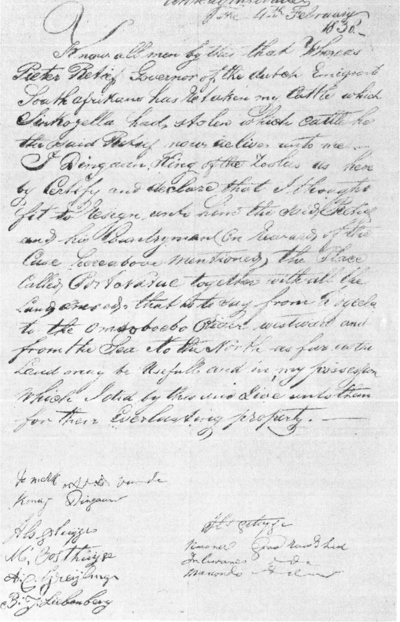 the 4th February
Know all men by this that Whereas
Pieter Retief Governor of the dutch Emigrant
South afrikans has Retaken my Cattle which
Sinkonyella had stolen which cattle he
the said Retief now deliver unto me
I Dingaan, King of the Zoolas as here
by Certify and declare that I thought
fit to Resign unto him the said Retief
and his Countrymen on Reward of the
Case hereabove mentioned the Place
Called Port Natal together with all the
Land annexed that is to say from
to the Omsoboebo River westward and
from the Sea to the North as far as the
Land may be Usefull and in my possession
Which I did by this and Give unto them
for their Everlasting property.
de
King Dingaan
M Oosthuyse
A C Greyling
B J Liebenberg